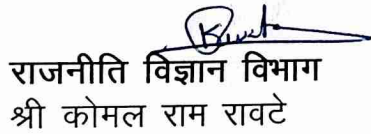 राजनीति विज्ञान विभाग
श्री कोमल राम रावटे